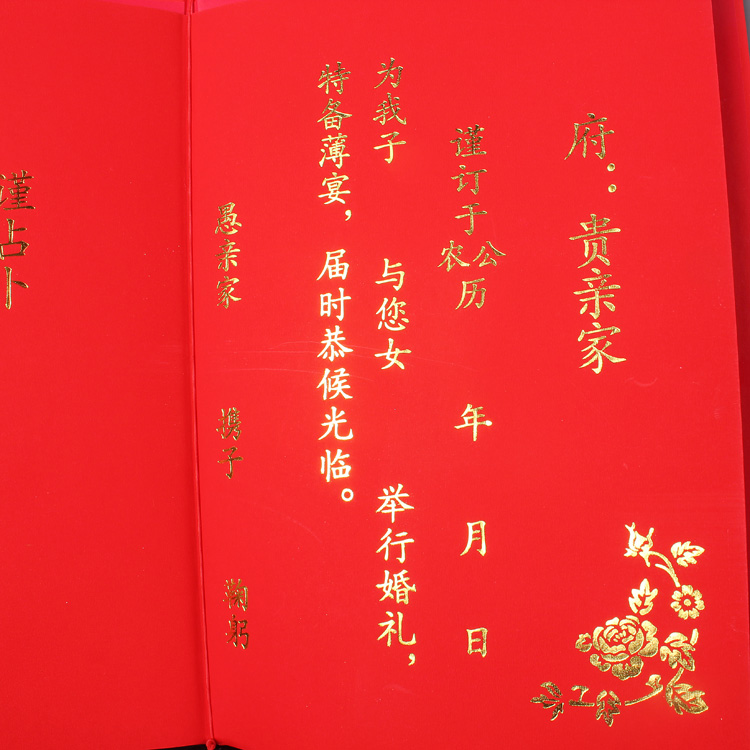 府：贵亲家
谨订于
农公
历 年 月 日
为我子 与您女 举行婚礼，
特备薄宴，届时恭候光临。
愚亲家 携子 鞠躬
谨占卜